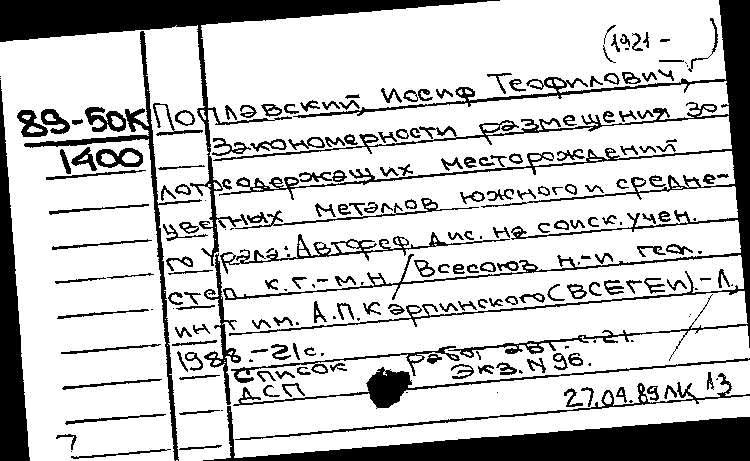 (1921 - )
89-50К Поплавский, Иосиф Теофилович,
1400 Закономерности размещения зо-
лотосодержащих месторождений
цветных металлов южного и средне-
го Урала: Автореф. дис. на соиск. учен.
степ. к.г.-м.н / Всесоюз н.-и. геол.
ин-т им. А.П.Карпинского (ВСЕГЕИ).-Л,
1988.-21с.
Список работ авт. с.21.
ДСП Экз. N 96.
27.04.89 ЛК
7